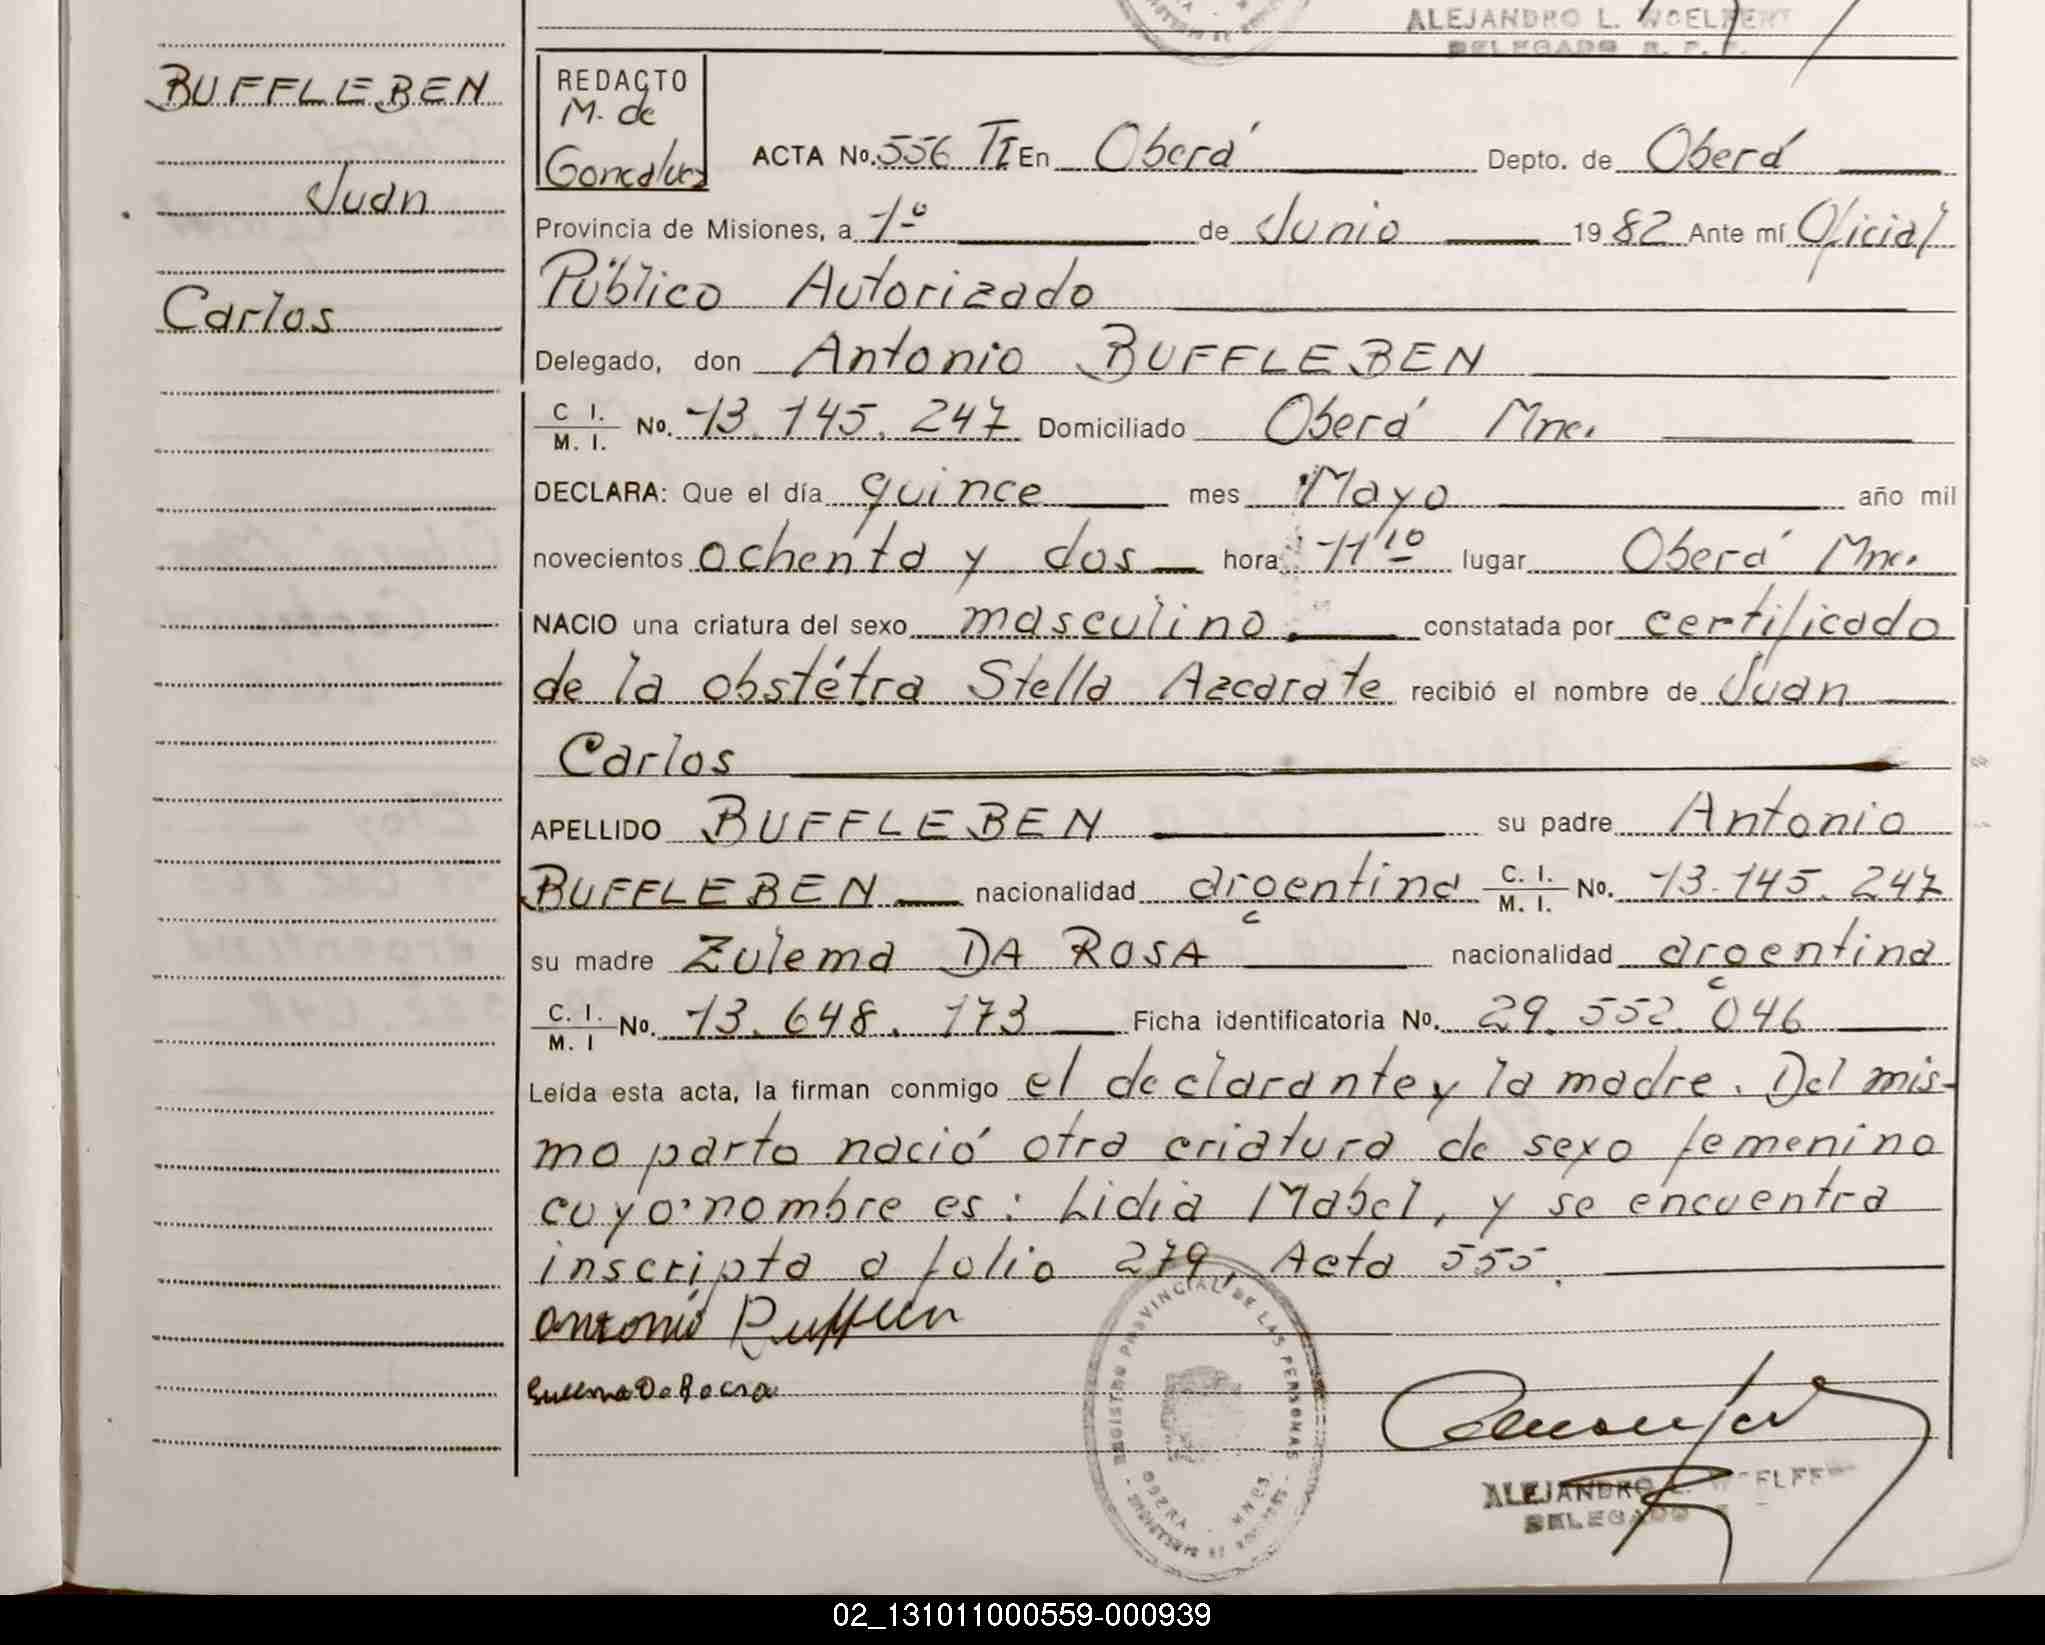 ALEJANDRO L. WOELFERT
DELEGADO R. P. P.
BUFFLEBEN
Juan
Carlos
REDACTO
M. de
Goncalvez
ACTA No. 556 TI En Oberá Depto. de Oberá
Provincia de Misiones, a 1º de Junio 1982 Ante mí Oficial
Público Autorizado
Delegado, don Antonio BUFFLEBEN
C I. M. I. No. 13.145.247 Domiciliado Oberá Mnes.
DECLARA: Que el día quince mes Mayo año mil
novecientos ochenta y dos hora 11 10 lugar Oberá Mnes.
NACIO una criatura del sexo masculino constatada por certificado
de la obstétra Stella Azcarate recibió el nombre de Juan
Carlos
APELLIDO BUFFLEBEN su padre Antonio
BUFFLEBEN nacionalidad argentina C. I. M. I. No. 13.145.247
su madre Zulema DA ROSA nacionalidad argentina
C. I. M. I No. 13.648.173 Ficha identificatoria No. 29.552.046
Leída esta acta, la firman conmigo el declarante y la madre. Del mis-
mo parto nació otra criatura de sexo femenino
cuyo nombre es: Lidia Mabel, y se encuentra
inscripta a folio 279, Acta 555.
Antonio
REGISTRO PROVINCIAL DE LAS PERSONAS
OBERA - MNES.
ALEJANDRO L. WOELFERT
DELEGADO
02_131011000559-000939